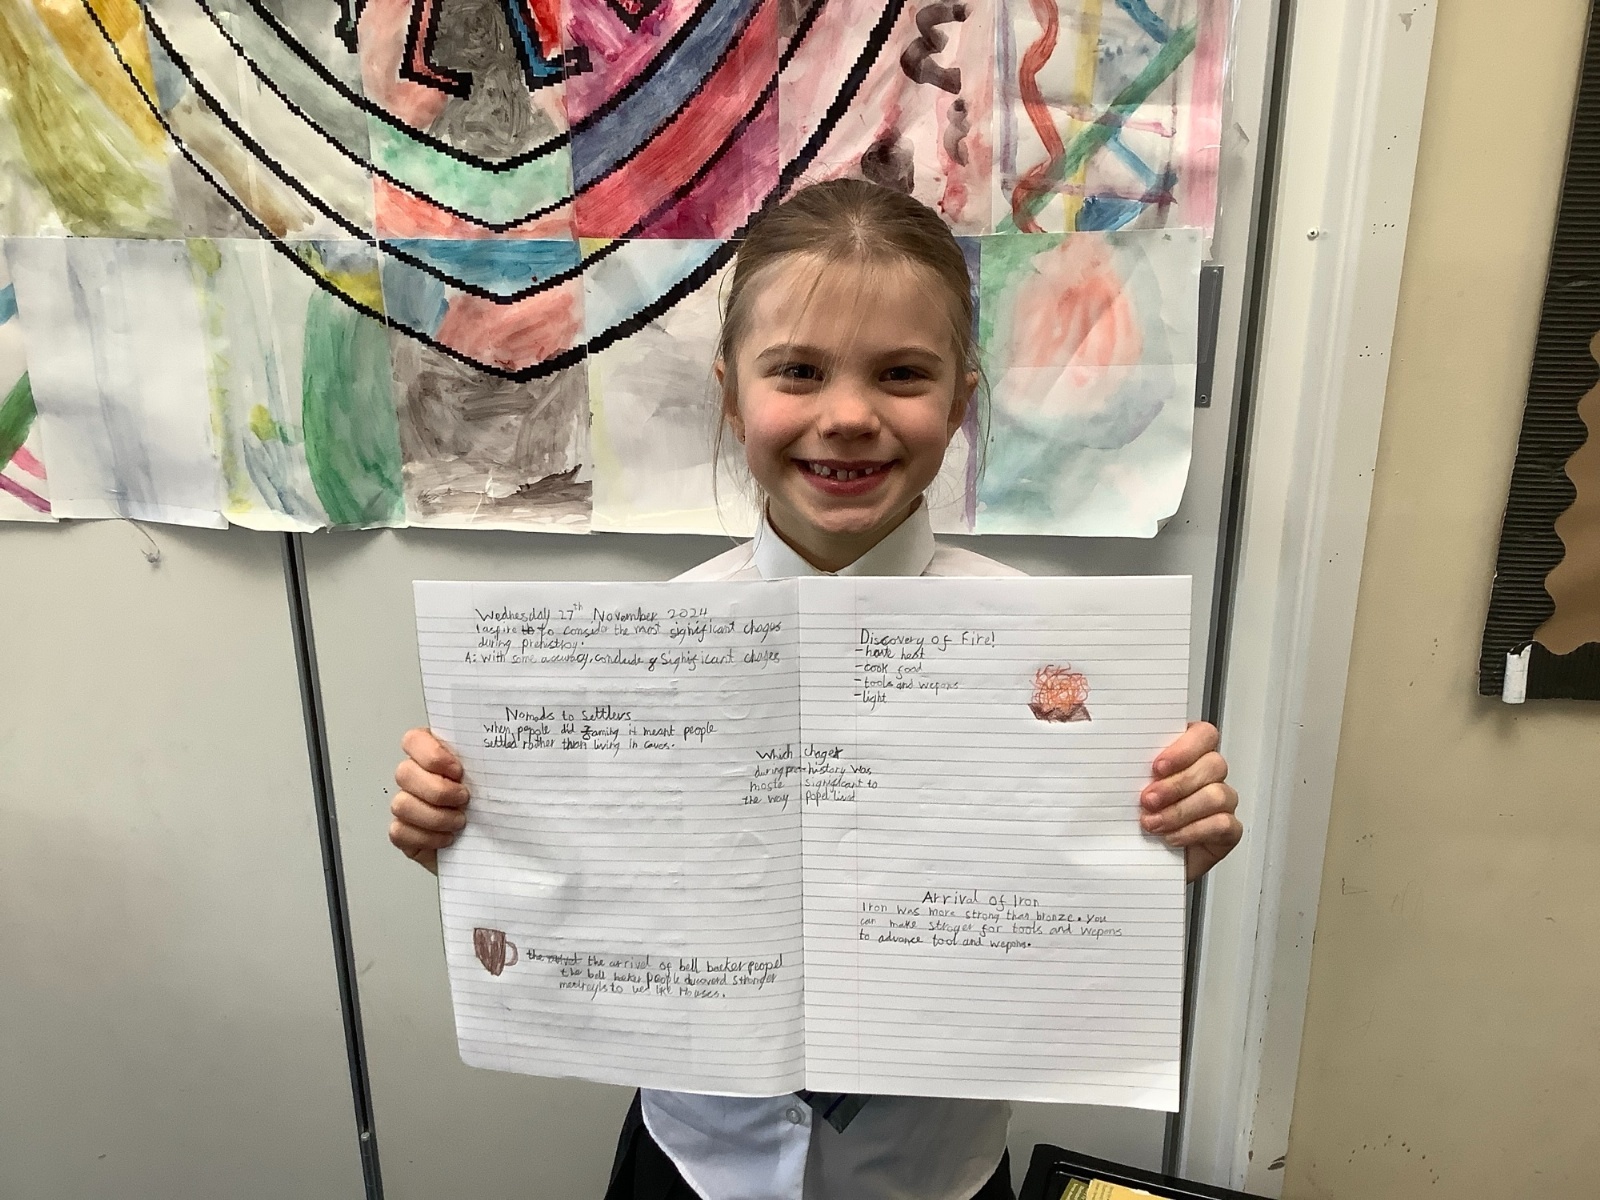 Wednesday 27th November 2024
I aspire to to consider the most significant chages
during prehistroy.
A: With some accuracy, conclude of significant chages
Nomads to Settlers
When people did faming it meant people
settled rother than living in caves.
the arrival the arrival of bell backer peopel
the bell baker people discoverd stronger
to use like Houses.
Which chages
during pre-history was
moste significant to
the way popel lived
Discovery of Fire!
- have heat
- cook food
- tools and wepons
- light
Arrival of Iron
Iron was more strong than bronze. You
can make stroger for tools and wepons
to advance tool and wepons.